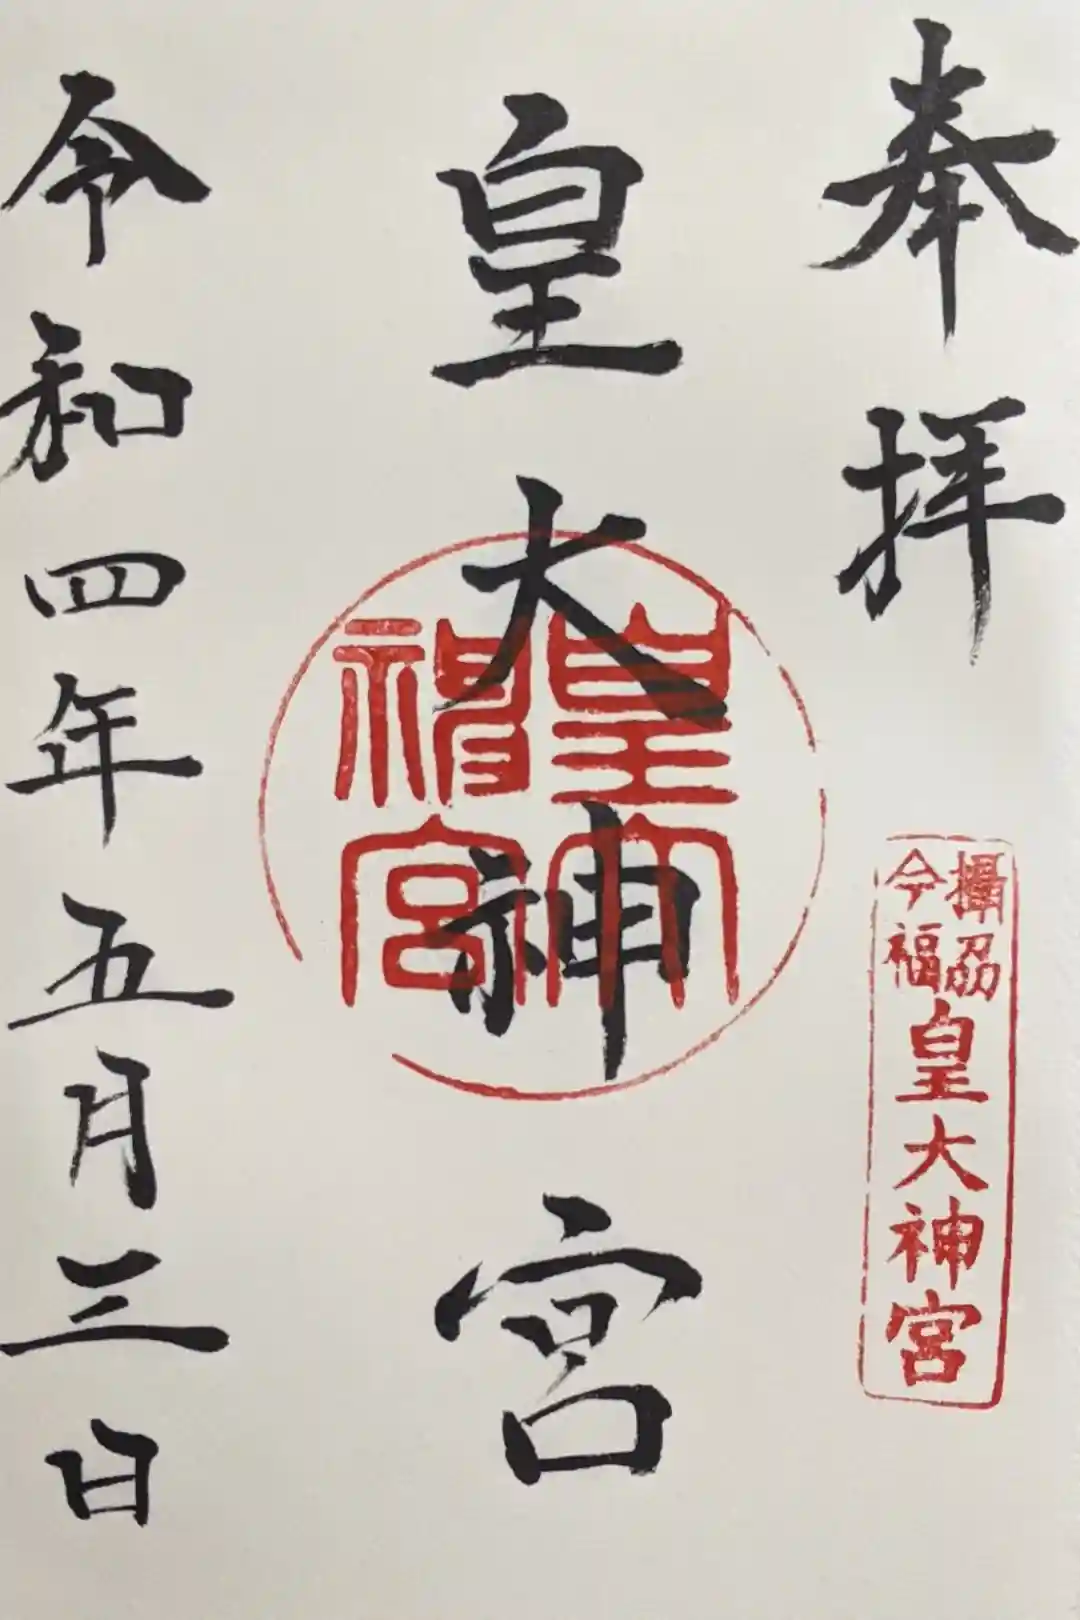 奉拝
攝刕
今福
皇大神宮
皇大神宮
皇大
神宮
令和四年五月三日